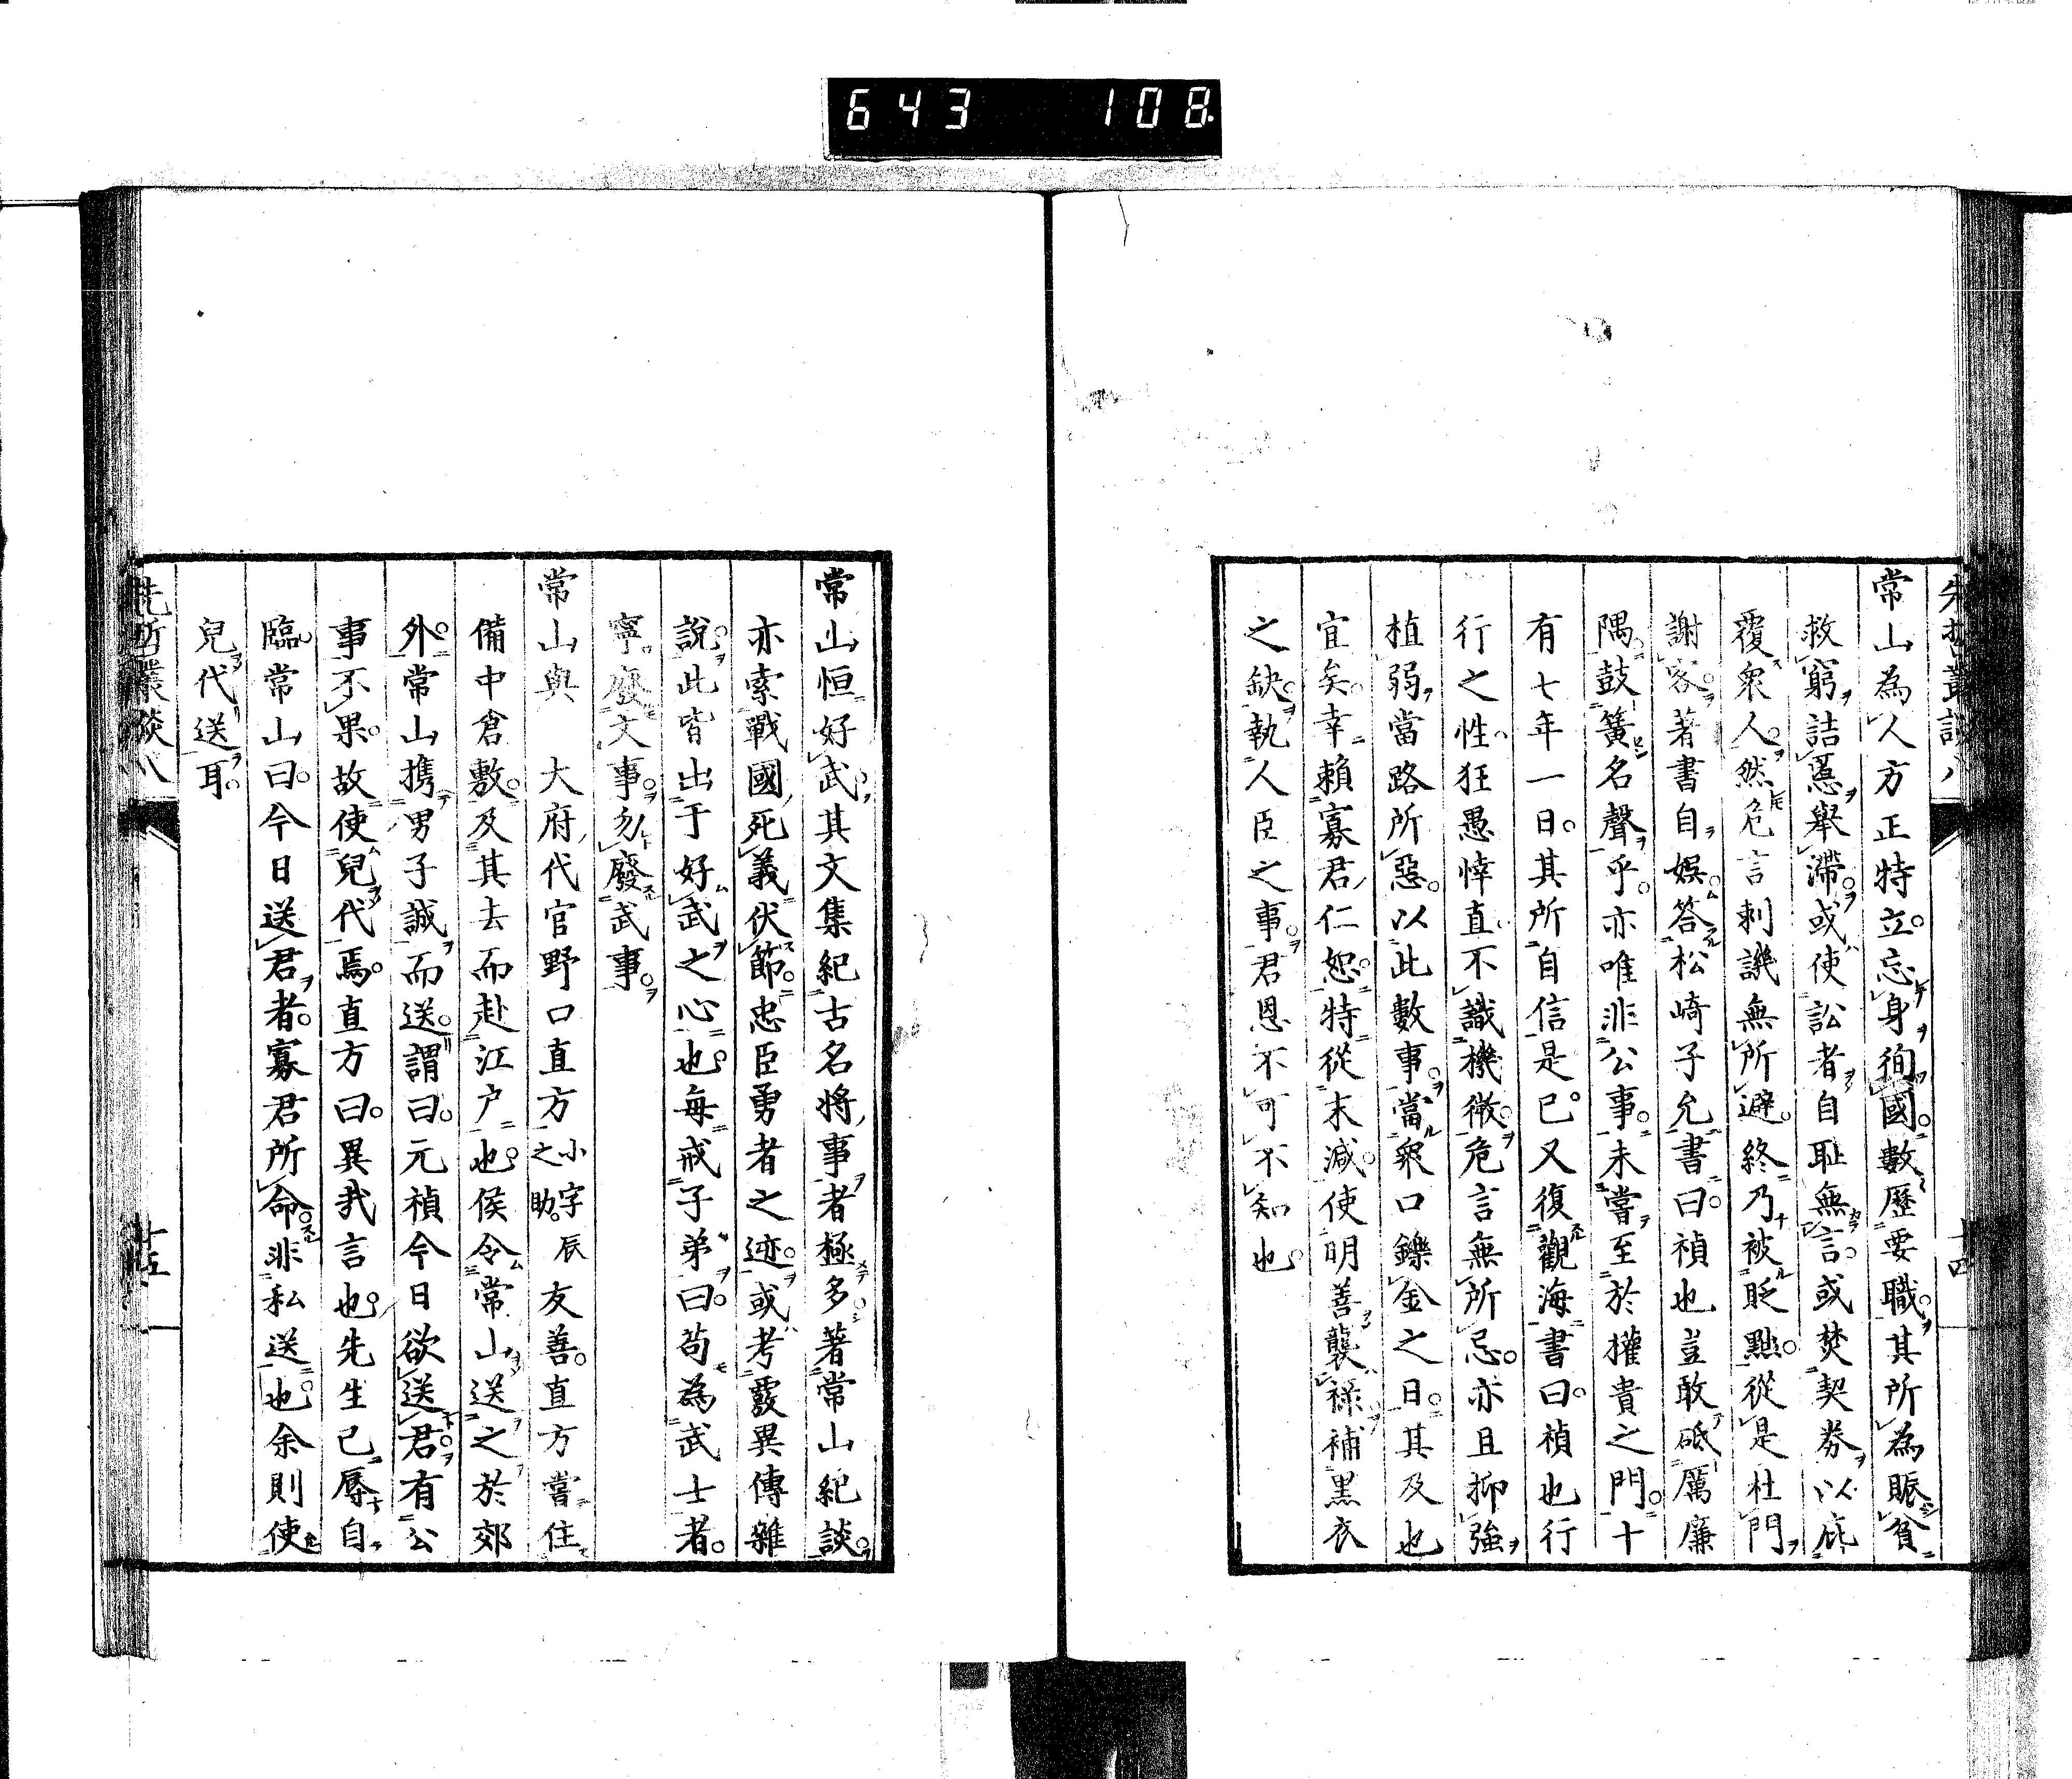 643 108
常山為人方正特立忘身徇國數歷要職其所為賑貧
救窮詰慝舉滯或使訟者自耻無言或焚契券以庇
覆衆人然危言刺譏無所避終乃被貶黜從是杜門
謝客著書自娯答松崎子允書曰禎也豈敢砥厲廉
隅鼓簧名聲乎亦唯非公事未嘗至於權貴之門十
有七年一日其所自信是已又復觀海書曰禎也行
行之性狂愚悻直不識機微危言無所忌亦且抑強
植弱當路所惡以此數事當衆口鑠金之日其及也
宜矣幸賴寡君仁恕特從末減使明善襲祿補黒衣
之缺執人臣之事君恩不可不知也
常山恒好武其文集紀古名將事者極多著常山紀談
亦索戰國死義伏節忠臣勇者之迹或考覈異傳雜
說此皆出于好武之心也每戒子弟曰苟為武士者
寧廢文事勿廢武事
常山與 大府代官野口直方小字辰之助友善直方嘗住
備中倉敷及其去而赴江户也侯令常山送之於郊
外常山携男子誠而送謂曰元禎今日欲送君有公
事不果故使兒代焉直方曰異哉言也先生已辱自
臨常山曰今日送君者寡君所命非私送也余則使
兒代送耳
先哲叢談八
十五